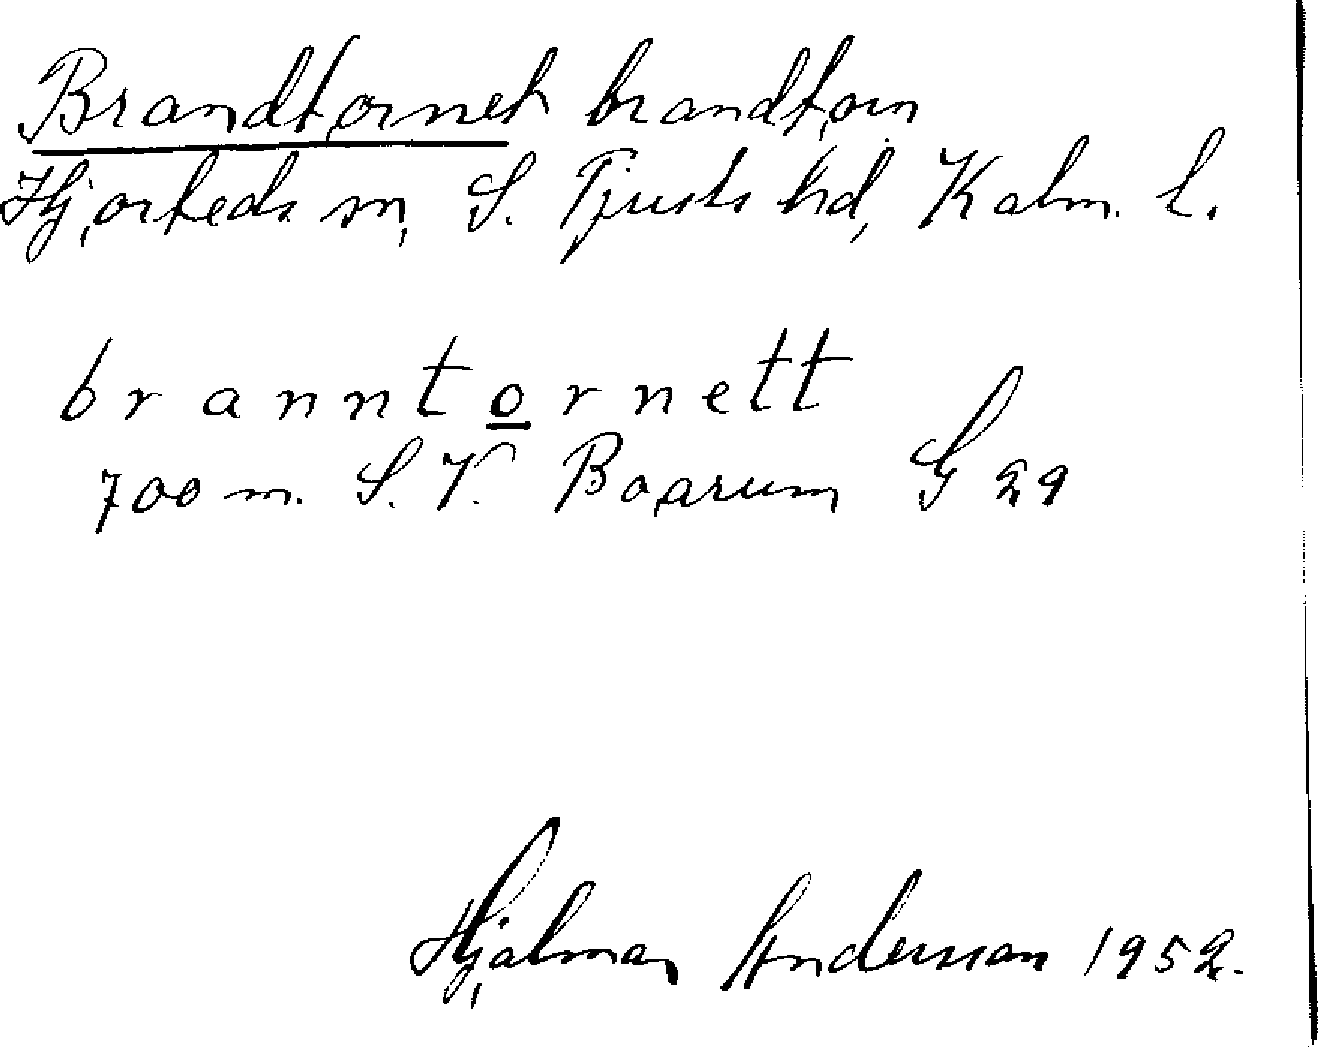 Brandtornet brandtorn
Hjorteds sn, S. Tjusts hd, Kalm. l.
branntornett
700 m. S.V. Boarum G 29
Hjalmar Andersson 1952.